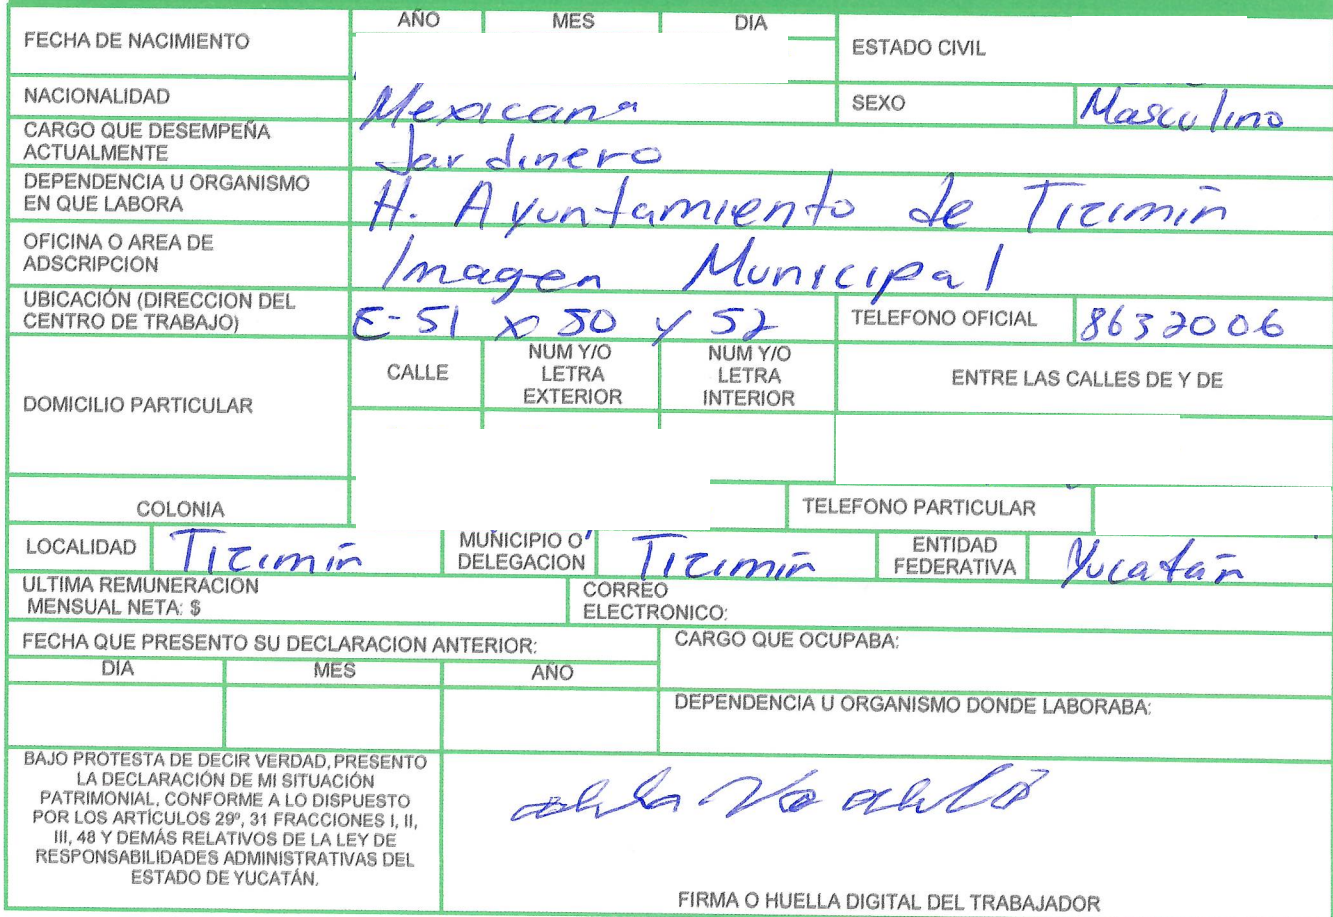 FECHA DE NACIMIENTO AÑO MES DIA ESTADO CIVIL
NACIONALIDAD Mexicana SEXO Masculino
CARGO QUE DESEMPEÑA
ACTUALMENTE Jardinero
DEPENDENCIA U ORGANISMO
EN QUE LABORA H. Ayuntamiento de Tizimín
OFICINA O AREA DE
ADSCRIPCION Imagen Municipal
UBICACIÓN (DIRECCION DEL
CENTRO DE TRABAJO) C-51 x 50 y 52 TELEFONO OFICIAL 8632006
DOMICILIO PARTICULAR
CALLE
NUM Y/O
LETRA
EXTERIOR
NUM Y/O
LETRA
INTERIOR
ENTRE LAS CALLES DE Y DE
COLONIA TELEFONO PARTICULAR
LOCALIDAD Tizimín
MUNICIPIO O
DELEGACION Tizimín
ENTIDAD
FEDERATIVA Yucatán
ULTIMA REMUNERACION
MENSUAL NETA: $
CORREO
ELECTRONICO:
FECHA QUE PRESENTO SU DECLARACION ANTERIOR:
DIA MES AÑO
CARGO QUE OCUPABA:
DEPENDENCIA U ORGANISMO DONDE LABORABA:
BAJO PROTESTA DE DECIR VERDAD, PRESENTO
LA DECLARACIÓN DE MI SITUACIÓN
PATRIMONIAL, CONFORME A LO DISPUESTO
POR LOS ARTÍCULOS 29º, 31 FRACCIONES I, II,
III, 48 Y DEMÁS RELATIVOS DE LA LEY DE
RESPONSABILIDADES ADMINISTRATIVAS DEL
ESTADO DE YUCATÁN.
FIRMA O HUELLA DIGITAL DEL TRABAJADOR